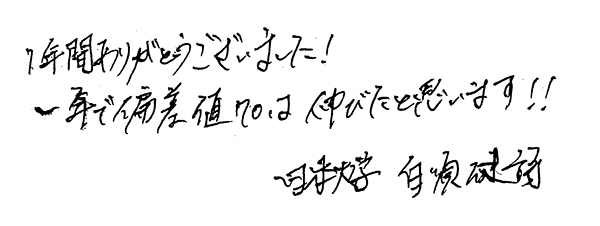 1年間ありがとうございました!
一年で偏差値70は伸びたと思います!!
日本大学